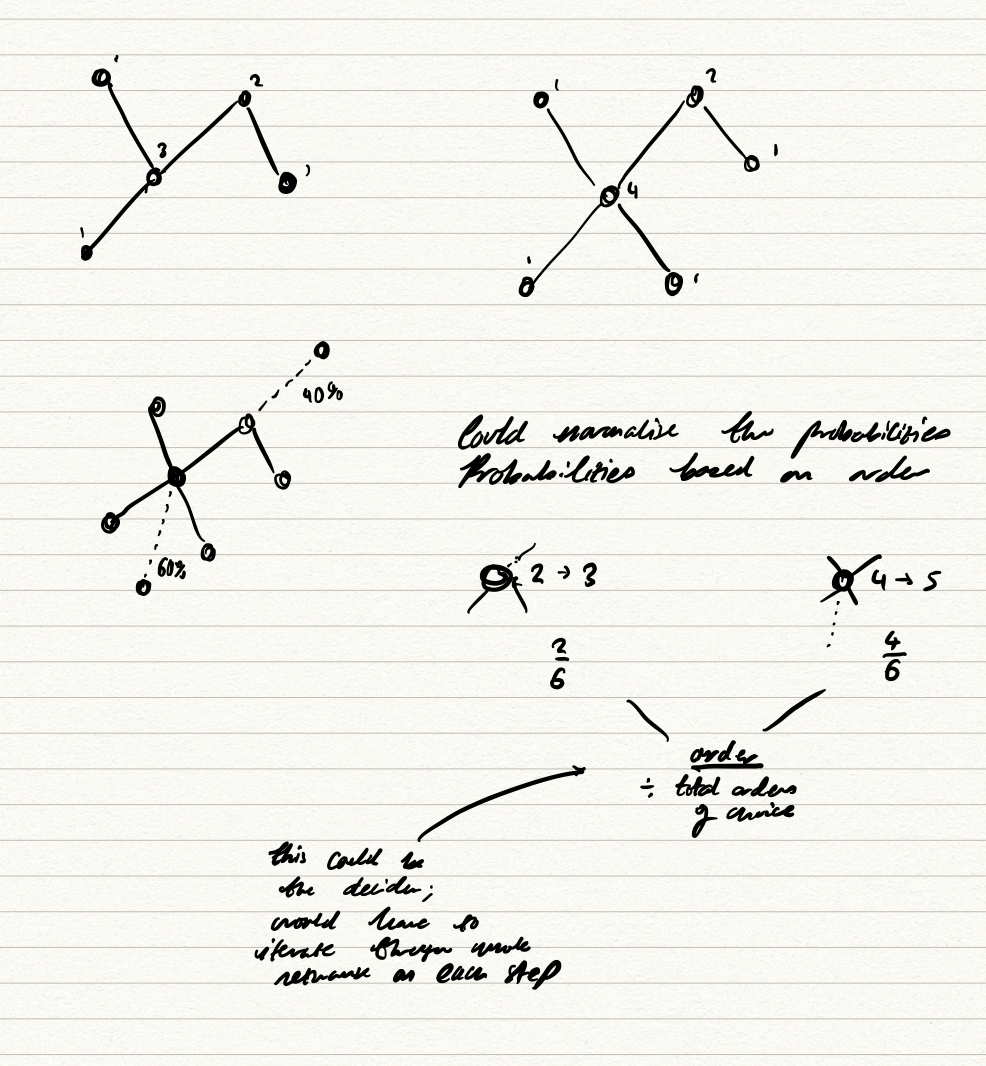 1
2
3
1
1
1
2
1
4
1
1
40%
60%
Could normalise the probabilities
Probabilities based on order
2 → 3
4 → 5
2
6
4
6
order
÷ total orders
of choice
this could be
the decider;
would have to
iterate through whole
network on each step